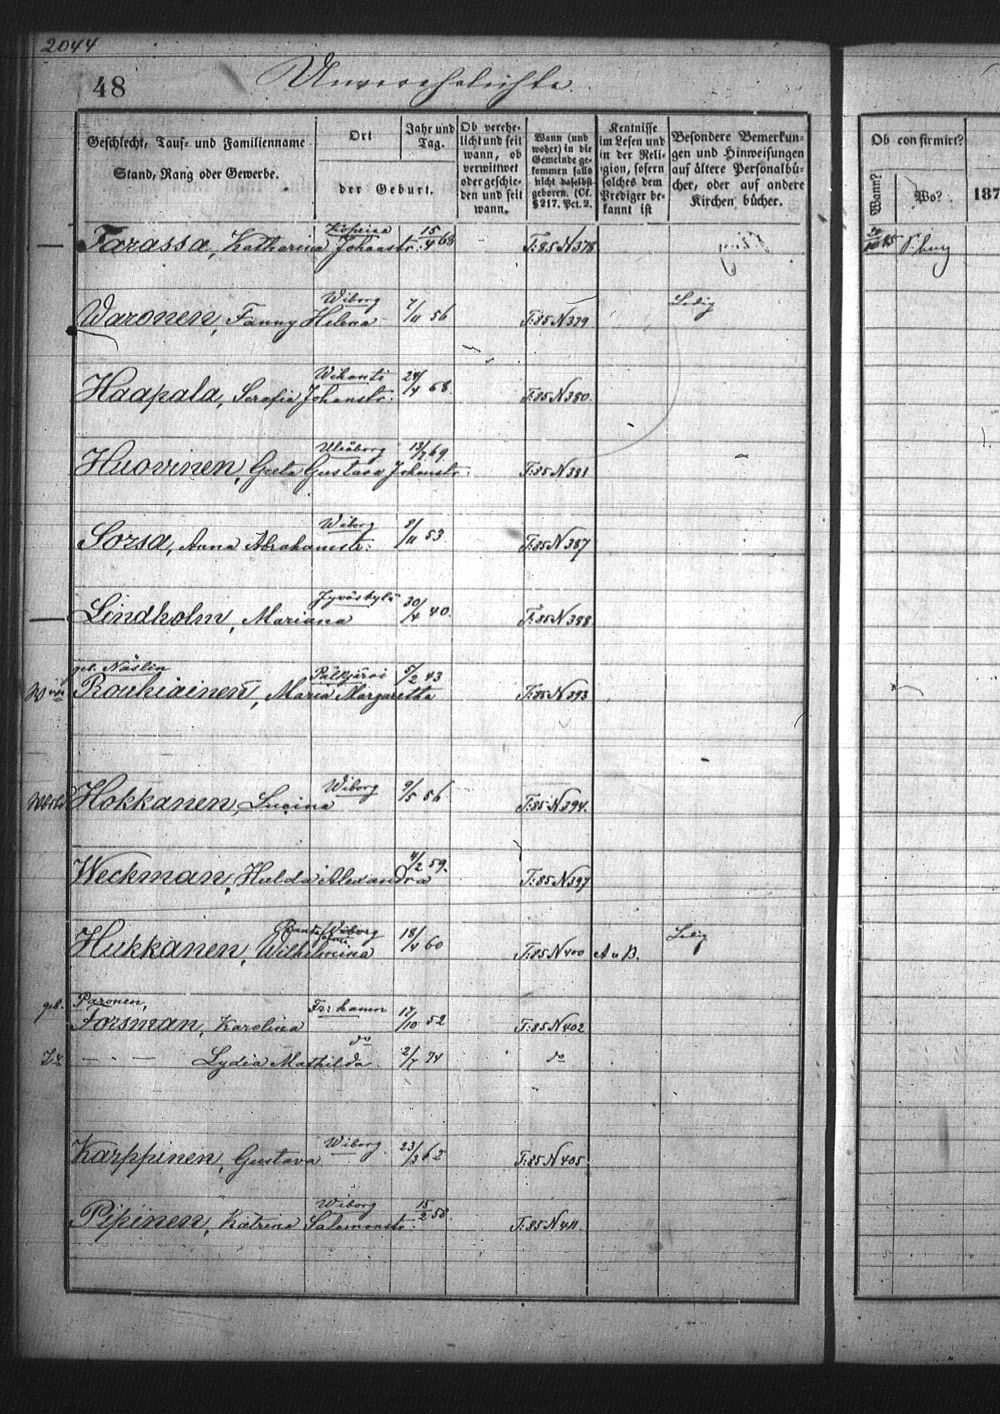 2044
48
Unverehelichte.
Geschlecht, Tauf- und Familienname
Stand, Rang oder Gewerbe.
Ort
der Geburt.
Jahr und
Tag.
Ob verehe-
licht und seit
wann, ob
verwittwet
oder geschie-
den und seit
wann.
Wann (und
woher) in die
Gemeinde ge-
kommen falls
nicht daselbst
geboren. (Cf.
§ 217. Pct. 2.
Kentnisse
im Lesen und
in der Reli-
gion, sofern
solches dem
Prediger be-
kannt ist
Besondere Bemerkun-
gen und Hinweisungen
auf ältere Personalbü-
cher, oder auf andere
Kirchenbücher.
Ob confirmirt?
Wann?
Wo?
187
Tarassa, Katharina Johanstr. 15/4 68 T:85 N 378
Waronen, Fanny Helena Wiborg 7/11 56 T:85 N 379 Ledig
Haapala, Serafia Johanstr: Wihanti 24/4 68. T:85 N 380.
Huovinen, Greta Gustava Johanstr. Uleåborg 69 T:85 N 381
Sorsa, Anna Abrahamstr: Wiborg 8/11 53 T:85 N 387
Lindholm, Mariana Jyväskylä 30/4 40. T:85 N 388
geb. Näslin
Rouhiainen, Maria Margaretha Pälkjärvi 5/2 43 T:85 N 393
Hokkanen, Lucina Wiborg 9/5 56 T:85 N 394.
Weckman, Hulda Alexandra 4/2 59. T:85 N 397
Hukkanen, Wilhelmina Wiborg 18/4 60 T:85 N 400 A u B. Ledig
geb. Paronen,
Forsman, Karolina Fr: hamn 17/10 52 T:85 N 402
— — Lydia Mathilda do 2/7 74 do
Karppinen, Gustava Wiborg 23/3 62 T:85 N 405
Pipinen, Katrina Salomonstr. Wiborg 15/2 58. T:85 N 411